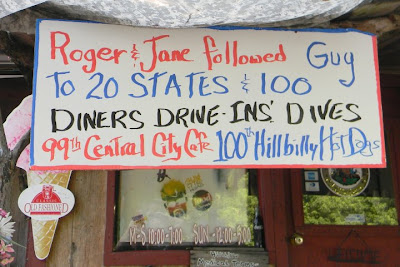 Roger & Jane followed Guy
To 20 STATES & 100
DINERS DRIVE-INS' DIVES
99th Central City Cafe 100th Hillbilly Hot Dogs
CLASSIC
OLD FASHIONED